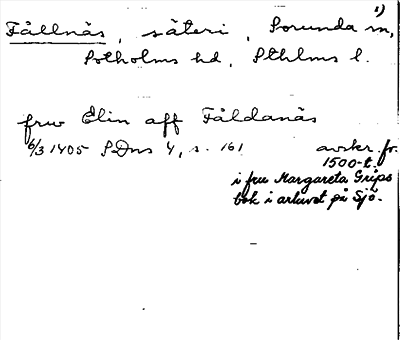 1)
Fållnäs, säteri, Sorunda sn,
Sotholms hd, Sthlms l.
frw Elin aff Fåldanäs
6/3 1405 SDns 4, s. 161 avskr. fr.
1500-t.
i fru Margareta Grips
bok i arkivet på Sjö.